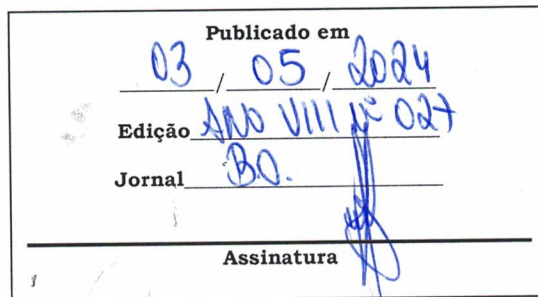 Publicado em
03 / 05 / 2024
Edição ANO VIII Nº 027
Jornal B.O.
Assinatura